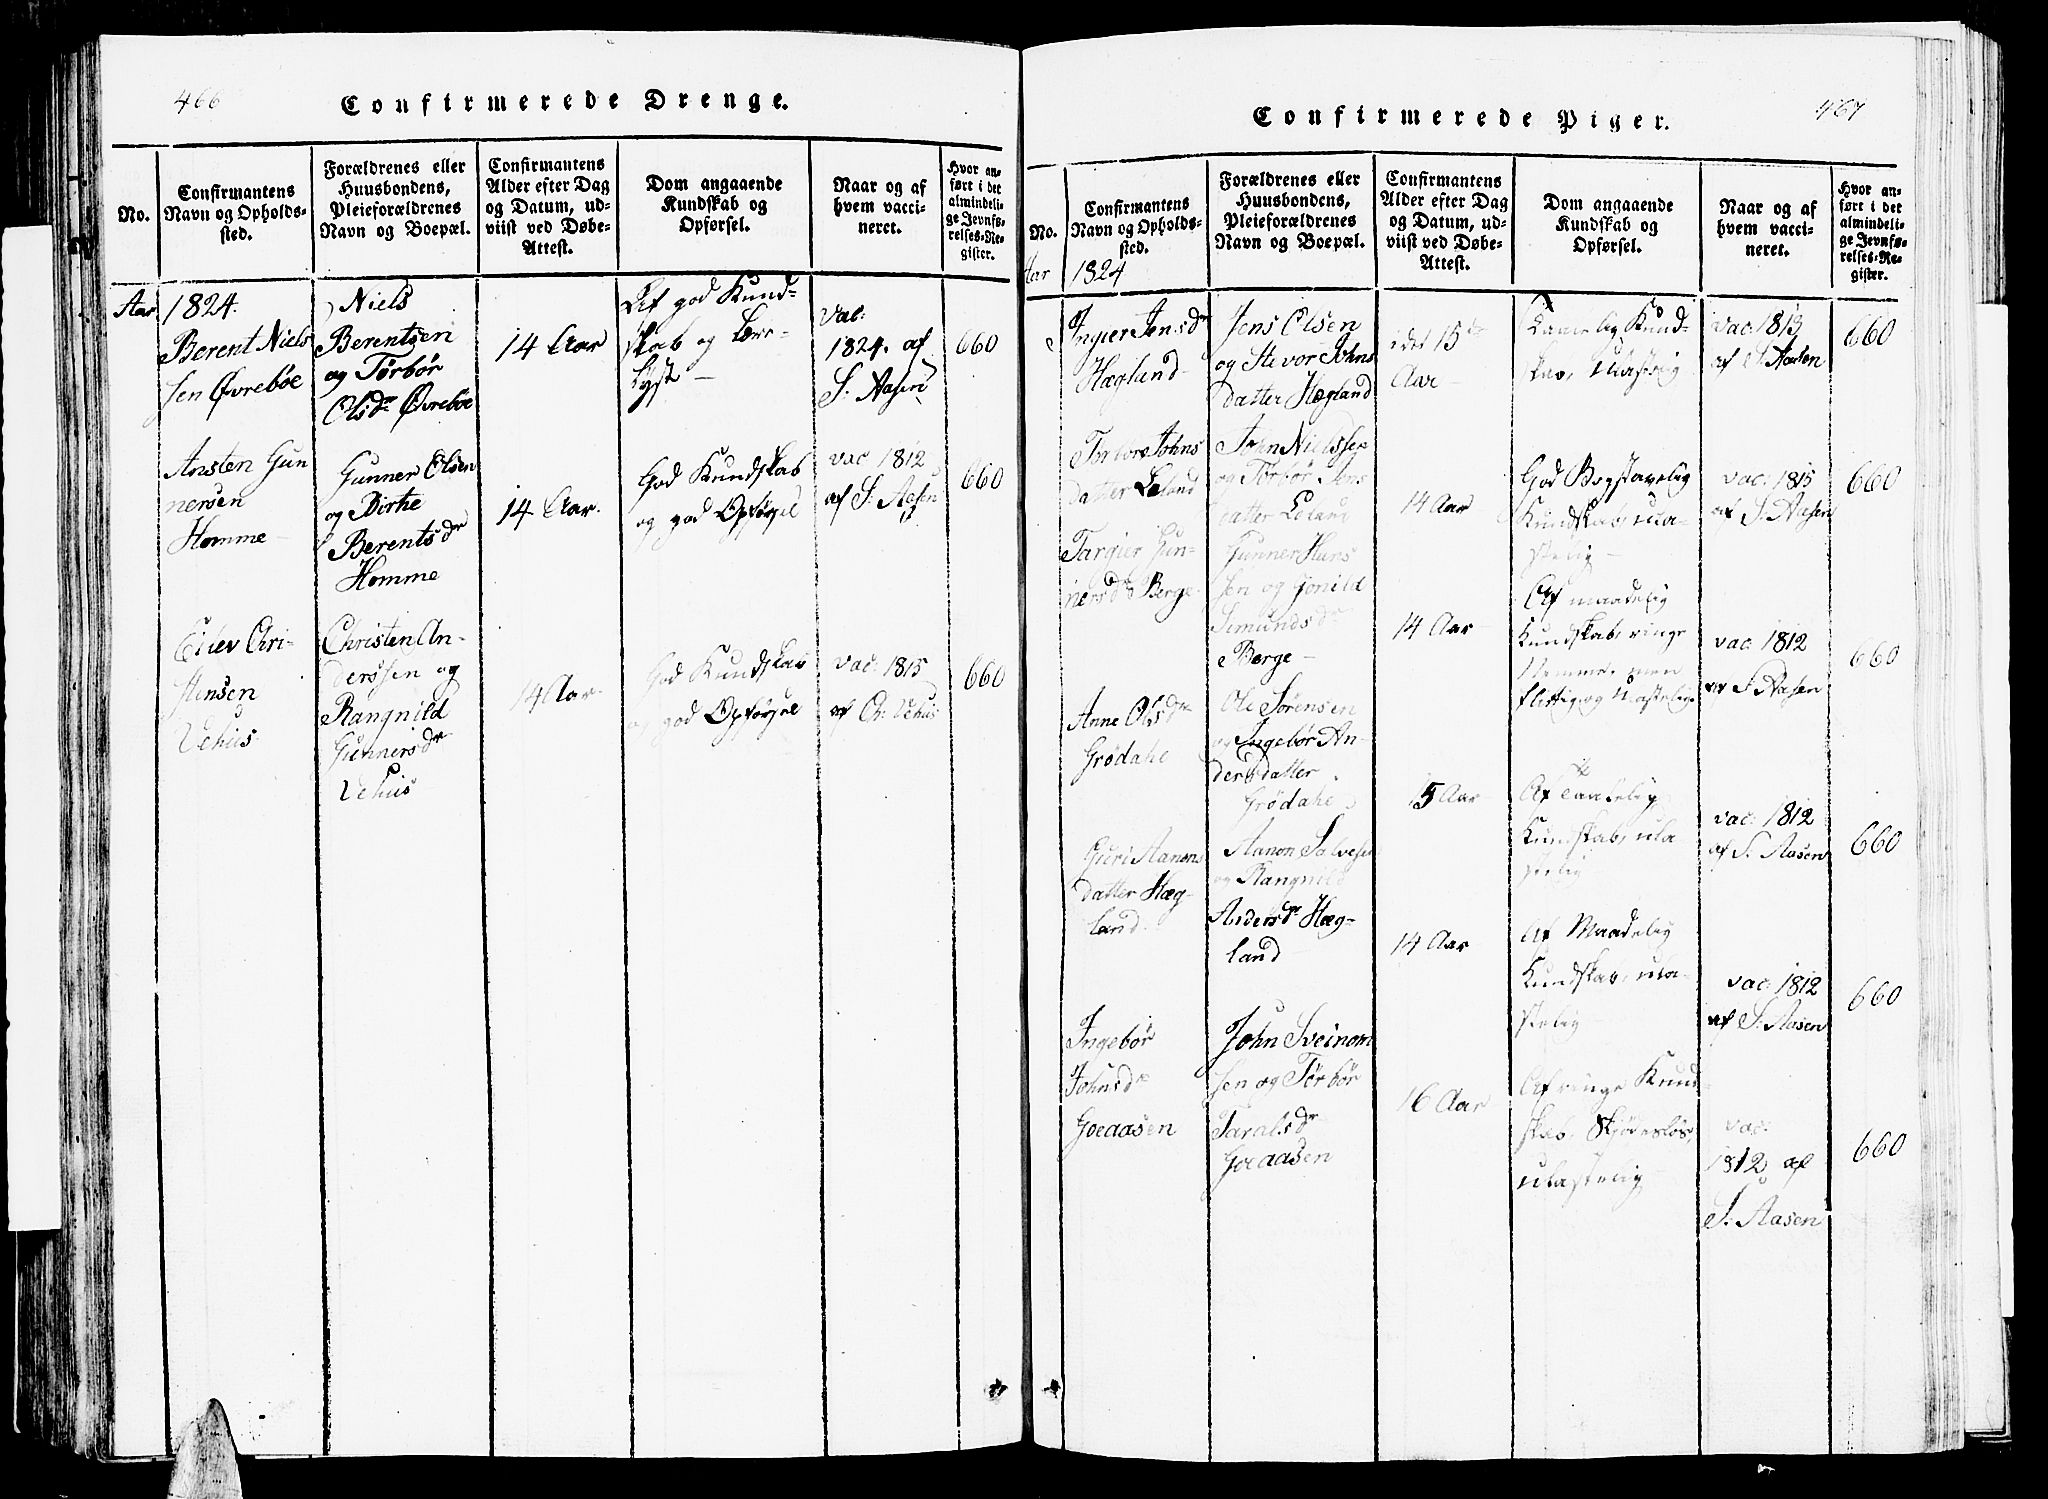 466
Confirmerede Drenge.
No.
Confirmantens
Navn og Opholds-
sted.
Forældrenes eller
Huusbondens,
Pleieforældrenes
Navn og Boepæl.
Confirmantens
Alder efter Dag
og Datum, ud-
viist ved Døbe-
Attest.
Dom angaaende
Kundskab og
Opførsel.
Naar og af
hvem vacci-
neret.
Hvor an-
ført i det
almindeli-
ge Jevnfø-
relses-Re-
gister.
Aar 1824.
Berent Niels
sen Øvrebøe
Niels
Berentsen
og Torbør
Olsdr Øvrebøe
14 Aar
Af god Kund-
skab og Lær-
lyst —
Vac:
1824. af
S. Aasen
660
Ansten Gun
nersen
Homme —
Gunner Olsen
og Birthe
Berentsdr
Homme
14 Aar.
God Kundskab
og god Opførsel
vac 1812
af S. Aasen
660
Eilev Chri-
stensen
Vehus
Christen An-
derssen og
Rangnild
Gunnersdr
Vehus
14 Aar
God Kundskab
og god Opførsel
vac: 1815
af Ch: Vehus
660
467
Confirmerede Piger.
No.
Confirmantens
Navn og Opholds-
sted.
Forældrenes eller
Huusbondens,
Pleieforældrenes
Navn og Boepæl.
Confirmantens
Alder efter Dag
og Datum, ud-
viist ved Døbe-
Attest.
Dom angaaende
Kundskab og
Opførsel.
Naar og af
hvem vacci-
neret.
Hvor an-
ført i det
almindeli-
ge Jevnfø-
relses-Re-
gister.
Aar 1824
Ingier Jensdr
Hægland
Jens Olsen
og Stevor Johns
datter Hægland
i det 15de
Aar —
Kund-
skab,
vac: 1813
af S. Aasen
660
Torbore Johns
datter Leland
John Nielssen
og Torbør Jens
datter Leland
14 Aar
God Bogstavelig
Kundskab, ula-
stelig —
vac: 1815
af S. Aasen
660
Targier Gun-
nersdr Berge
Gunner Hans
sen og Gonild
Simundsdr
Berge —
14 Aar
Af maadelig
Kundskab, ringe
Nemme, men
flittig og Ulastelig
vac: 1812
af S. Aasen
660
Anne Olsdr
Grødahe
Ole Sørensen
og Ingebør An-
dersdatter
Grødahe
15 Aar
Af Taalelig
Kundskab, ula
stelig
vac: 1812
af S. Aasen
660
Guri Aanons
datter Hæg-
land
Aanon Salvesen
og Rangnild
Andersdr Hæg-
land
14 Aar
Af Maadelig
Kundskab, ula-
stelig
vac: 1812
af S. Aasen
660
Ingebør
Johnsdr
Goeaasen
John Sveinom
sen og Torbør
Taralsdr
Goeaasen
16 Aar
Af ringe Kund-
skab, Skjødesløs,
ulastelig
vac:
1812 af
S. Aasen
660